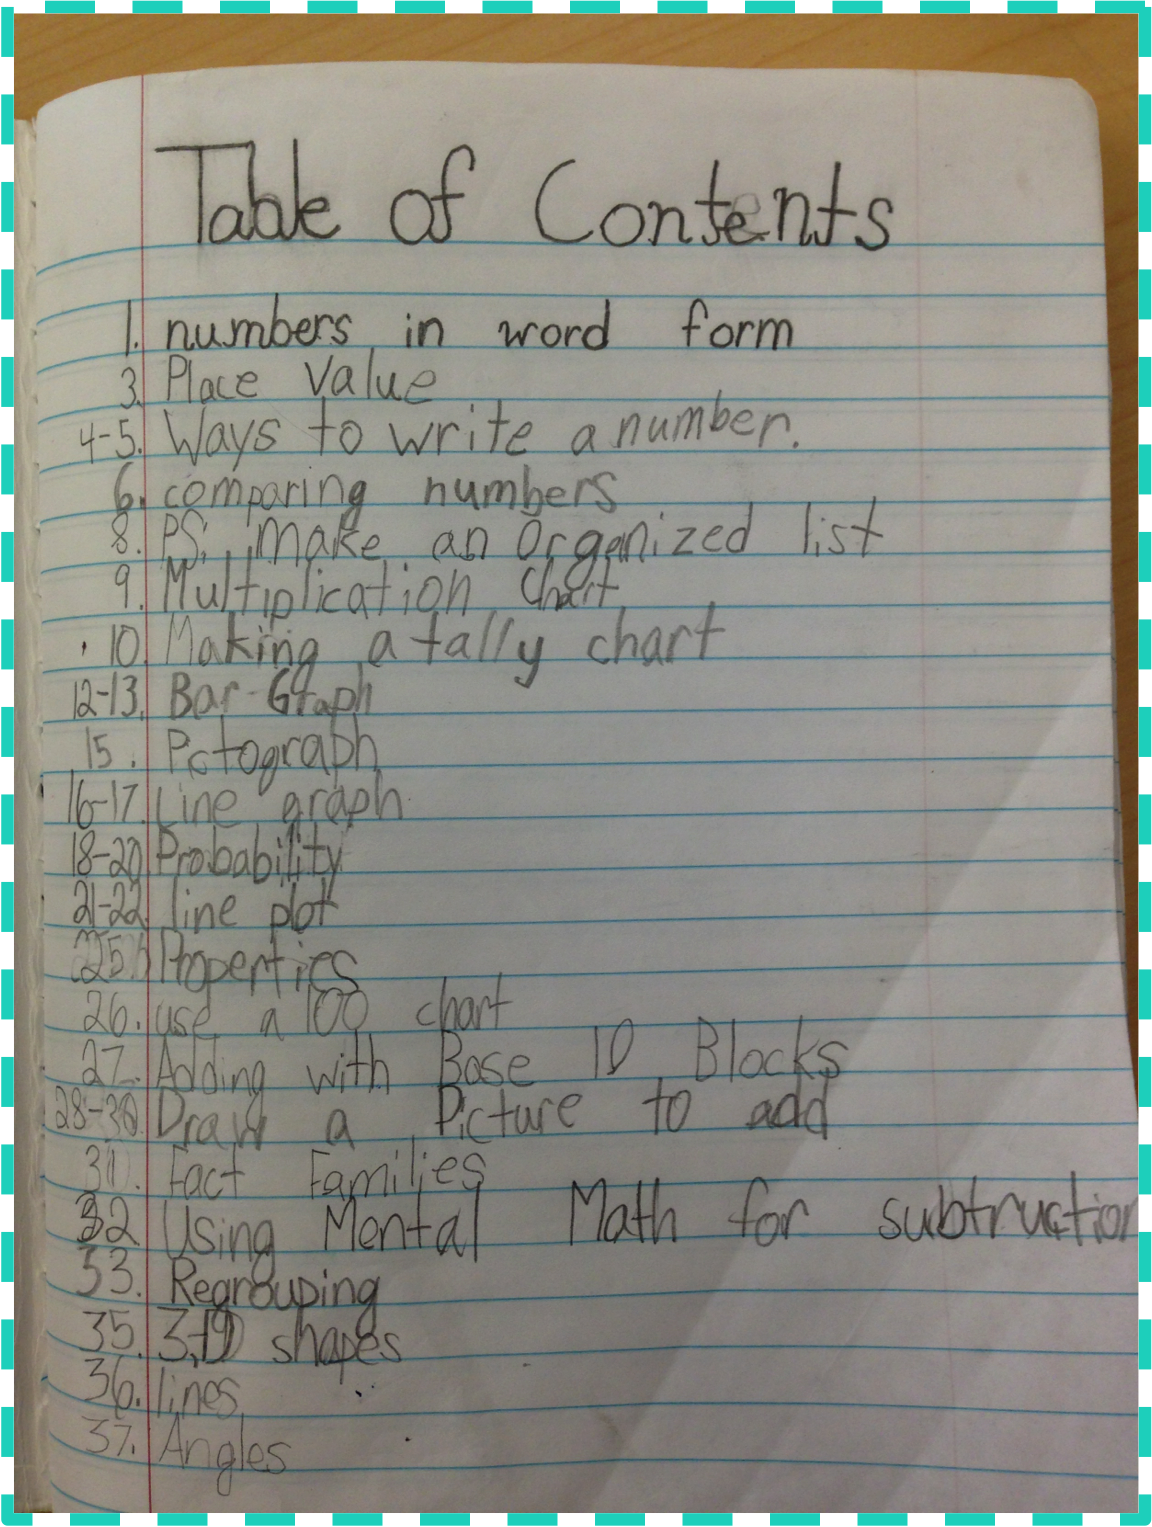 Table of Contents
1. numbers in word form
3. Place Value
4-5. Ways to write a number.
6. comparing numbers
8. PS: Make an Organized list
9. Multiplication Chart
10. Making a tally chart
12-13. Bar Graph
15. Pctograph
16-17. Line graph
18-20 Probability
21-22. line plot
25. Properties
26. use a 100 chart
27. Adding with Base 10 Blocks
28-30. Draw a Picture to add
31. Fact Families
32 Using Mental Math for subtruction
33. Regrouping
35. 3-D shapes
36. lines
37. Angles